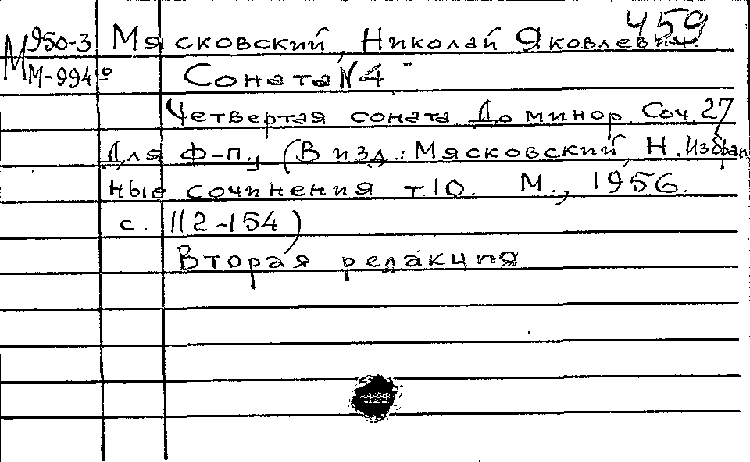 459
М950-3 Мясковский, Николай Яковлевич.
М-994 Соната №4
Четвертая соната До минор. Соч. 27
Для ф-п., (В изд.: Мясковский, Н. Избран
ные сочинения т.10. М., 1956.
с. 112-154)
Вторая редакция